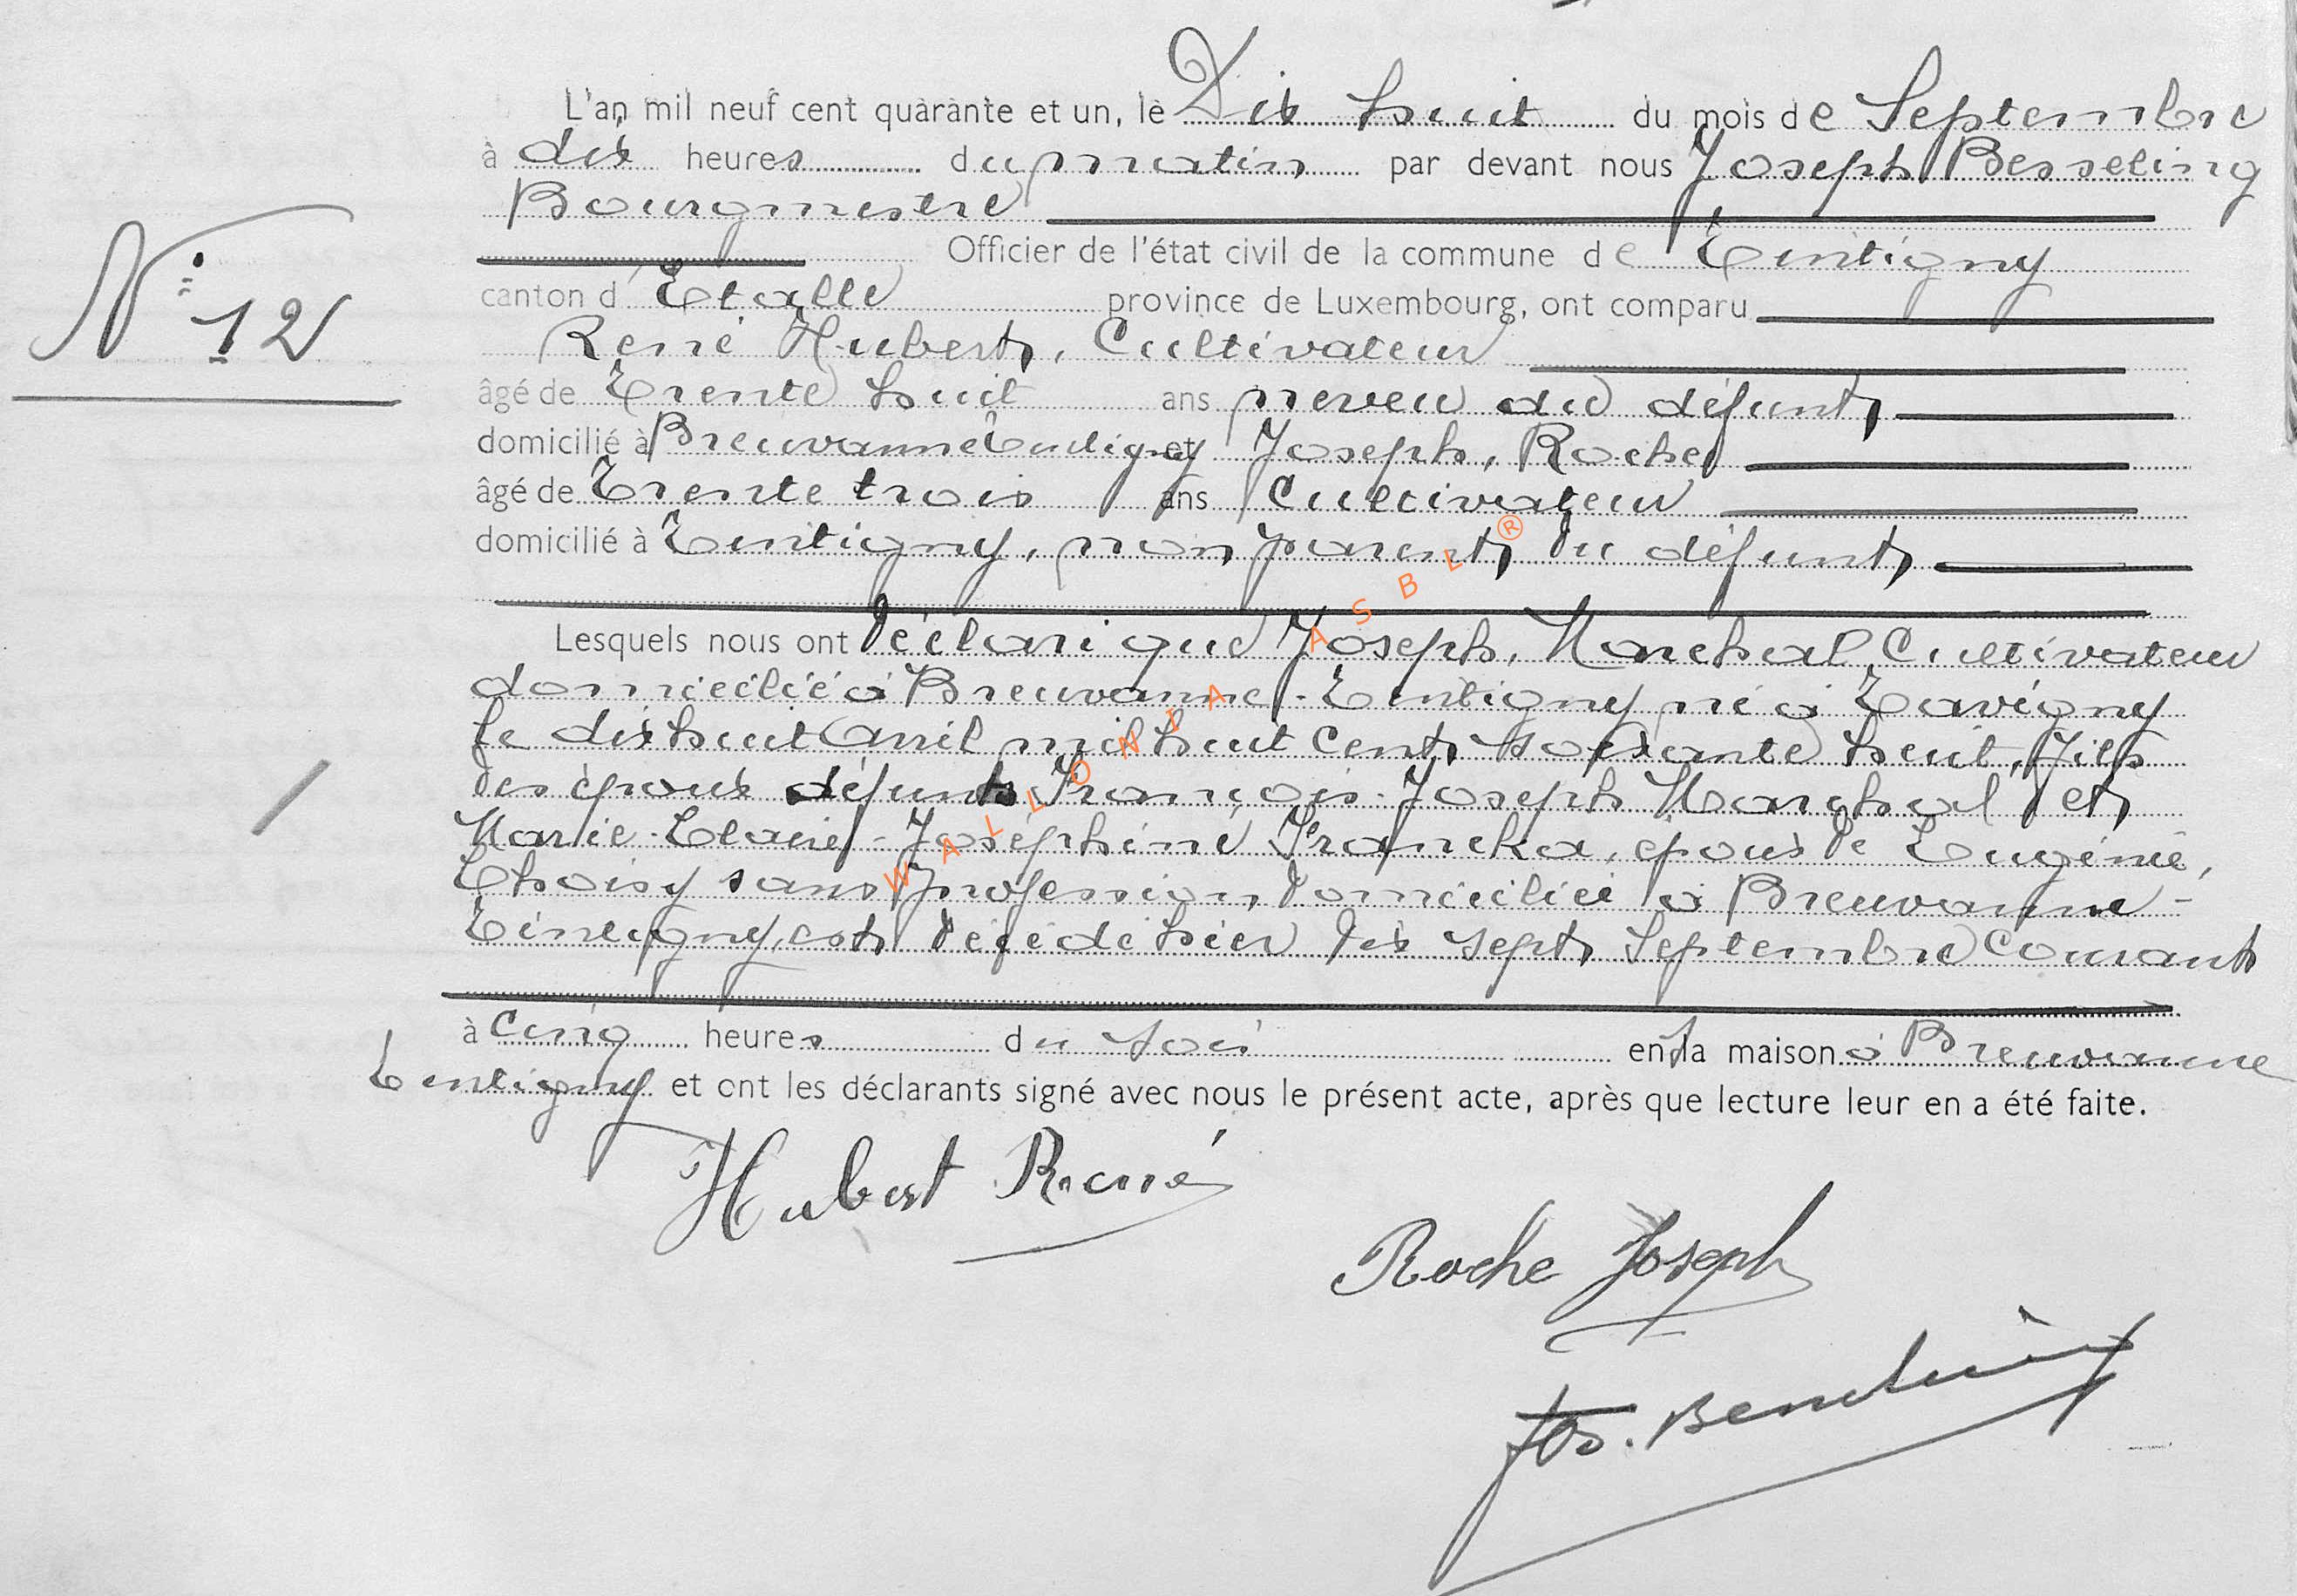 L'an mil neuf cent quarante et un, le Dix huit du mois de Septembre
à dix heures du matin par devant nous Joseph Besseling
Bourgmestre
N° 12
Officier de l'état civil de la commune de Tintigny
canton d'Etalle province de Luxembourg, ont comparu
René Hubert, Cultivateur
âgé de Trente huit ans neveu du défunt
domicilié à Breuvanne Tintigny et Joseph, Roche
âgé de Trente trois ans Cultivateur
domicilié à Tintigny, non parent du défunt
Lesquels nous ont déclaré que Joseph, Marchal Cultivateur
domicilié à Breuvanne-Tintigny né à Tavigny
le dix huit Avril mil huit cent soixante huit, fils
des époux défunts François-Joseph Marchal et
Marie-Claire-Joséphine Francka, époux de Eugénie,
Thoisy sans profession domiciliée à Breuvanne-
Tintigny, est décédé hier dix sept Septembre Courant
à Cinq heures du soir en sa maison à Breuvanne
Tintigny et ont les déclarants signé avec nous le présent acte, après que lecture leur en a été faite.
Hubert René
Roche Joseph
Jos. Besseling
WALLONIA ASBL ®